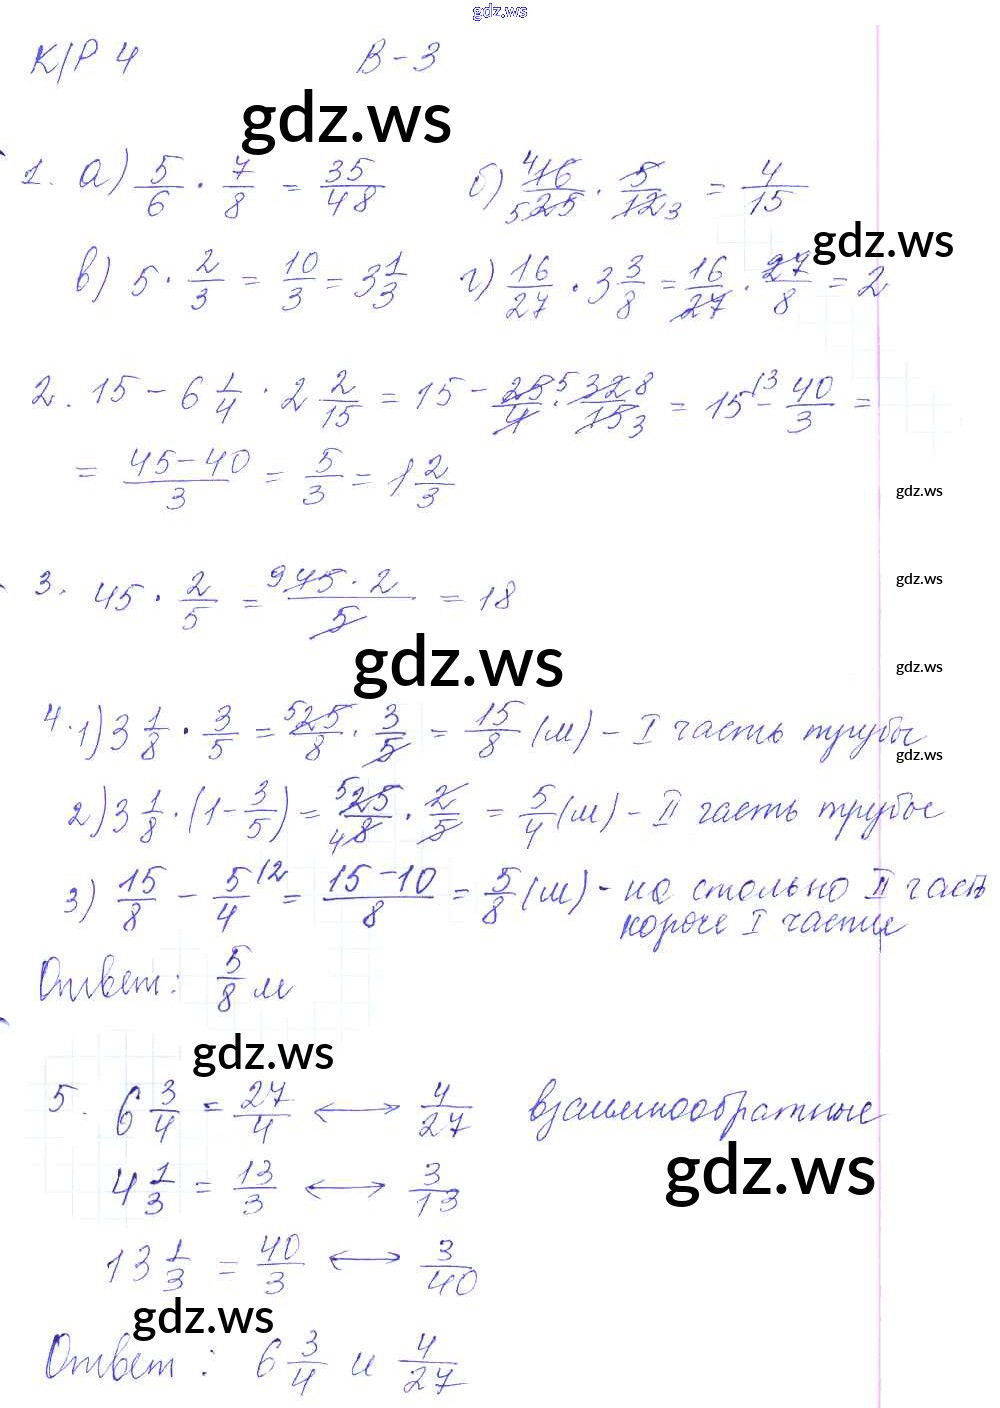 gdz.ws
К/Р 4 В-3
gdz.ws
1. а) 5/6 · 7/8 = 35/48 б) 4 16/5 25 · 5/12 3 = 4/15
gdz.ws
в) 5 · 2/3 = 10/3 = 3 1/3 г) 16/27 · 3 3/8 = 16/27 · 27/8 = 2
2. 15 - 6 1/4 · 2 2/15 = 15 - 25 5/4 · 32 8/15 3 = 15 13 - 40/3 =
= 45-40/3 = 5/3 = 1 2/3
gdz.ws
gdz.ws
3. 45 · 2/5 = 9 45 · 2/5 = 18
gdz.ws
gdz.ws
4. 1) 3 1/8 · 3/5 = 5 25/8 · 3/5 = 15/8 (м) - I часть трубы
gdz.ws
2) 3 1/8 · (1 - 3/5) = 5 25/4 8 · 2/5 = 5/4 (м) - II часть трубы
3) 15/8 - 5/4 12 = 15-10/8 = 5/8 (м) - на столько II часть
короче I части
Ответ: 5/8 м
gdz.ws
5. 6 3/4 = 27/4 ⟷ 4/27 взаимнообратные
gdz.ws
4 1/3 = 13/3 ⟷ 3/13
13 1/3 = 40/3 ⟷ 3/40
gdz.ws
Ответ: 6 3/4 и 4/27